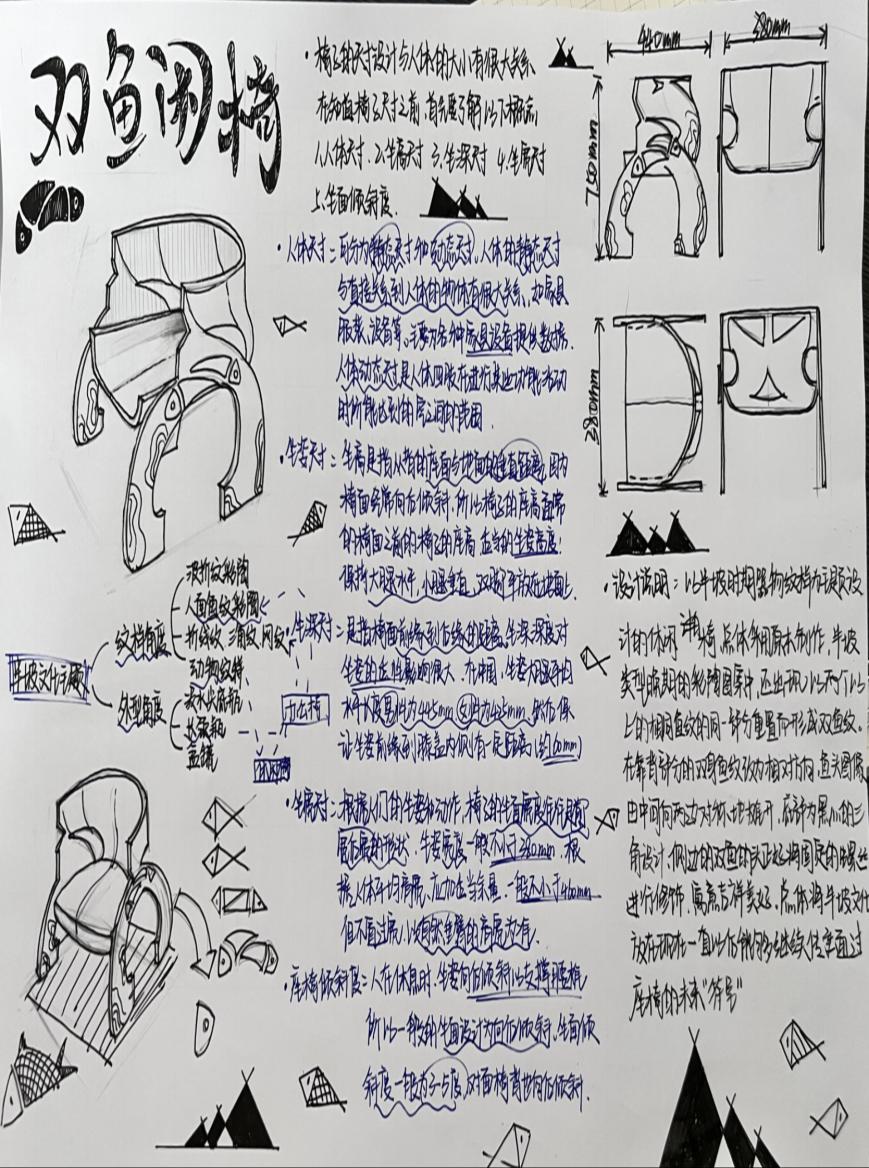 双鱼闲椅
·椅子的尺寸设计与人体的大小有很大关系
在知道椅子尺寸之前,首先要了解以下标志
1.人体尺寸. 2.坐高尺寸 3.坐深尺寸 4.坐宽尺寸
5.坐面倾斜度.
440mm
380mm
750mm
380mm
·人体尺寸:可分为静态尺寸和动态尺寸,人体的静态尺寸
与直接关系到人体的物体有很大关系,如家具
服装,设备等.主要为各种家具设备提供数据.
人体动态尺寸是人体四肢在进行某些功能活动
时所能达到的空间的范围.
·坐姿尺寸:坐高是指从椅的座面与地面的垂直距离,因为
椅面会常向后倾斜.所以椅子的座高通常
的椅面之前的椅子的座高.适当的坐姿高度:
保持大腿水平,小腿垂直,双脚平放在地面上.
·坐深尺寸:是指椅面前缘到后缘的距离,坐深深度对
坐姿的适性影响很大.在中国,坐姿大腿平均
水平长度男性为445mm 女性为425mm,然后保
让坐姿前缘到膝盖内侧有一定距离(约60mm)
·坐宽尺寸:根据人们的坐姿和动作,椅子的坐面宽度往往是前
宽后窄的形状.坐姿宽度一般不小于380mm.根
据人体平均肩宽,应加适当余量.一般不小于460mm
但不宜过宽,以自然垂臂的肩宽为宜.
·座椅倾斜度:人在休息时.坐姿向后倾斜以支撑腰椎
所以一般的坐面设计为向后倾斜,坐面倾
斜度一般为3-5度,对面椅背也向后倾斜.
半坡文化元素
纹样角度
人面鱼纹彩陶
折线纹 三角纹 网纹
动物纹样
外型角度
尖底瓶
·设计说明:以半坡时期器物纹样为主题设
计的休闲椅,总体采用原木制作,半坡
类型晚期的彩陶图案中,还出现以两个以
上的相同鱼纹的同一部分重叠而形成双鱼纹。
在靠背部分的双身鱼纹改为相对方向,直头图像
由中间向两边对称地推开,底部为黑的三
角设计,侧边的双鱼的头正好将固定的螺丝
进行修饰,寓意吉祥美好,总体将半坡文化
放在现在一直以后能够继续传承通过
座椅的未来“符号”